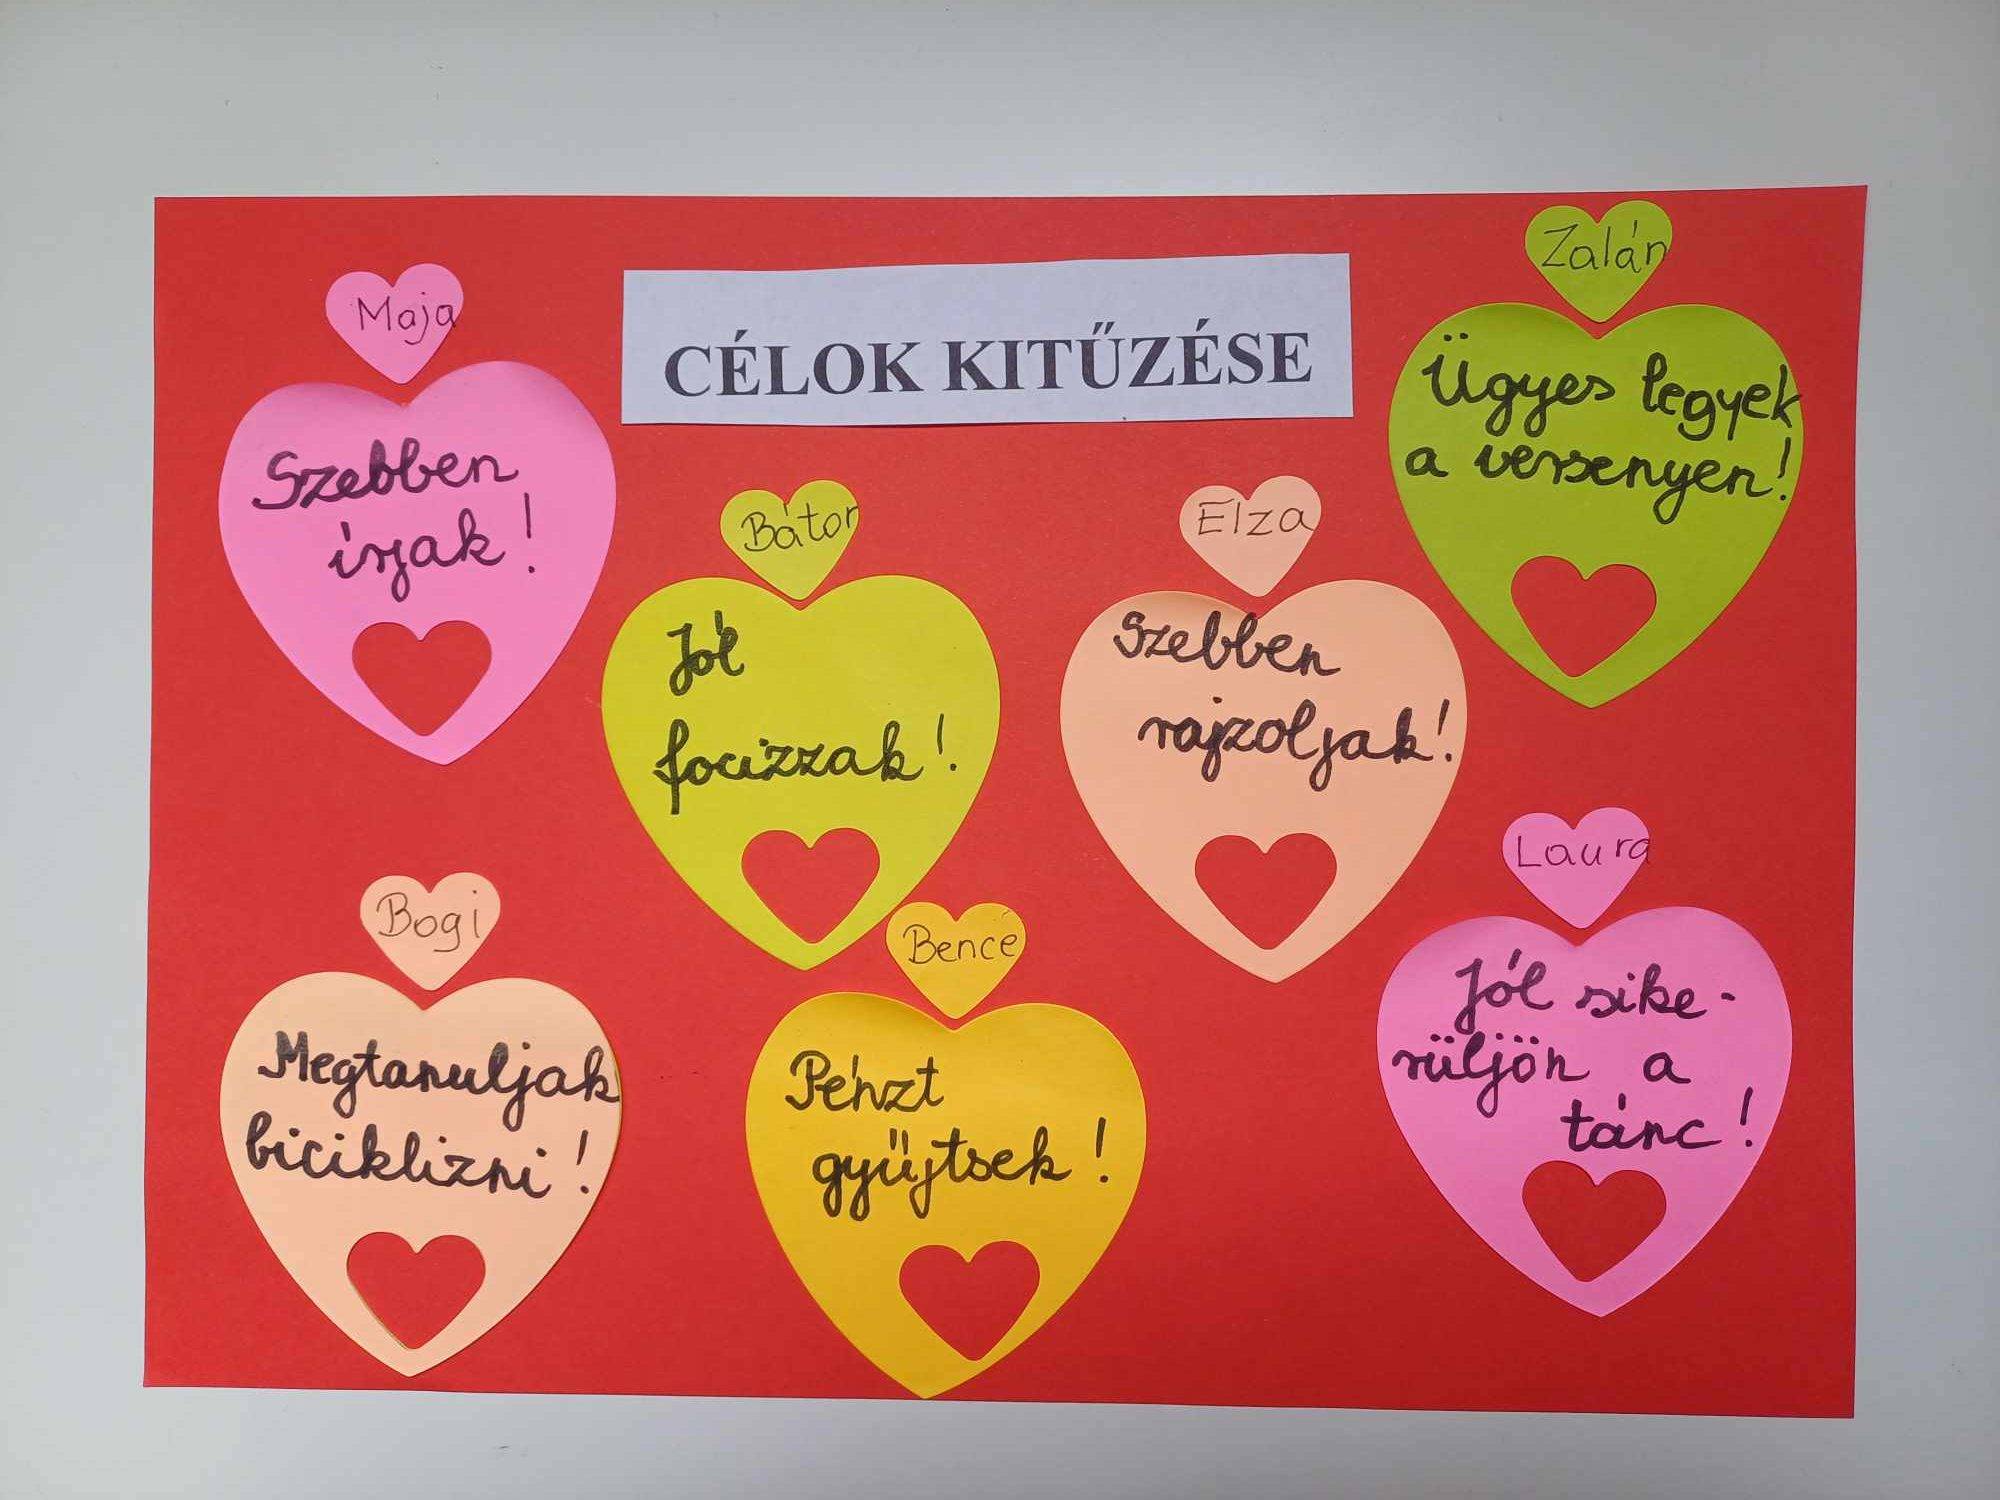 CÉLOK KITŰZÉSE
Maja
Szebben
írjak!
Bátor
Jól
focizzak!
Elza
Szebben
rajzoljak!
Zalán
Ügyes legyek
a versenyen!
Bogi
Megtanuljak
biciklizni!
Bence
Pénzt
gyűjtsek!
Laura
Jól sike-
rüljön a
tánc!